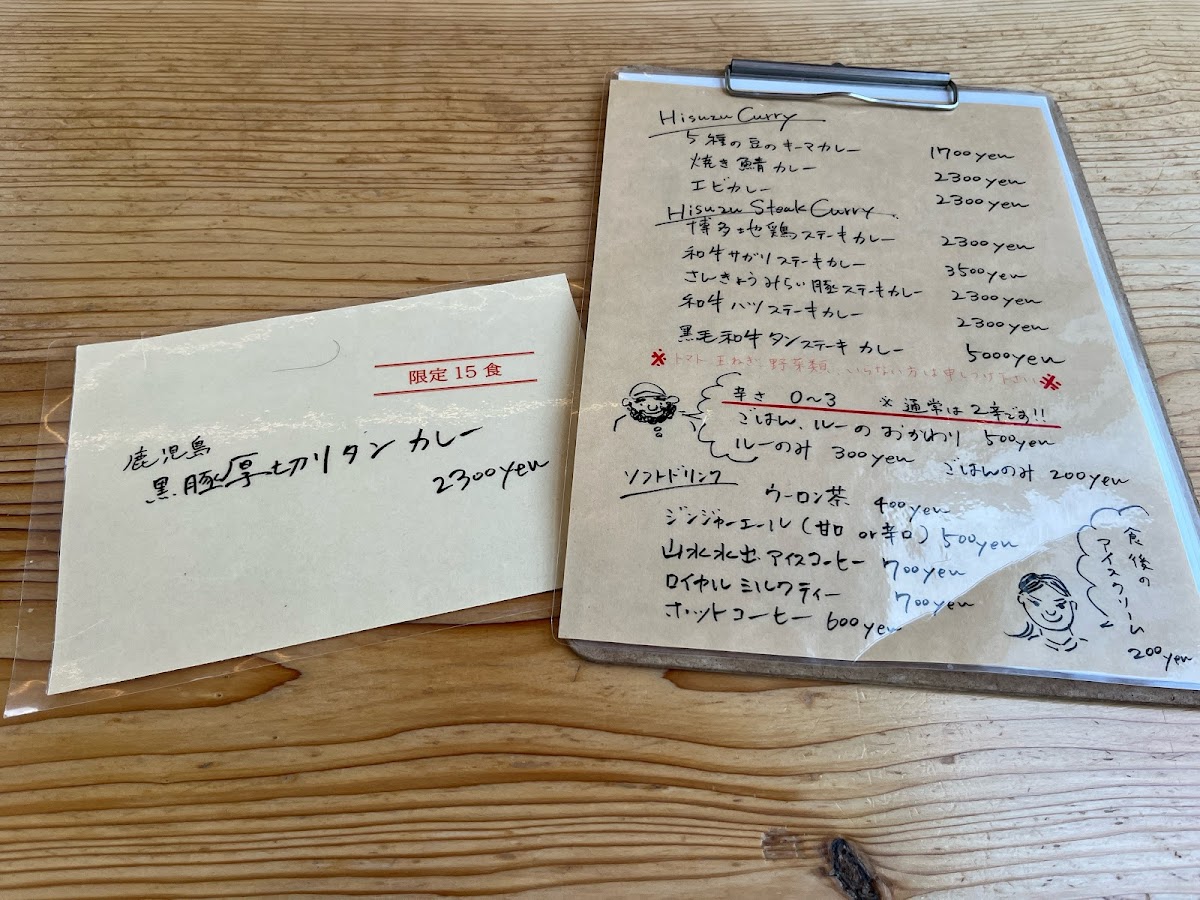 限定 15 食
鹿児島
黒豚厚切りタン カレー
2300yen
Hisuzu Curry
5種の豆のキーマカレー 1700yen
焼き鯖カレー 2300yen
エビカレー 2300yen
Hisuzu Steak Curry
博多地鶏ステーキカレー 2300yen
和牛サガリステーキカレー 3500yen
さんきょうみらい豚ステーキカレー 2300yen
和牛ハツステーキカレー 2300yen
黒毛和牛タンステーキ カレー 5000yen
※トマト 玉ねぎ 野菜類 いらない方は申しつけ下さい※
辛さ 0〜3 ※通常は2辛です!!
ごはん、ルーのおかわり 500yen
ルーのみ 300yen ごはんのみ 200yen
ソフトドリンク
ウーロン茶 400yen
ジンジャーエール (甘口 or 辛口) 500yen
山水水出アイスコーヒー 700yen
ロイヤルミルクティー 700yen
ホットコーヒー 600yen
食後の
アイスクリーム
200yen